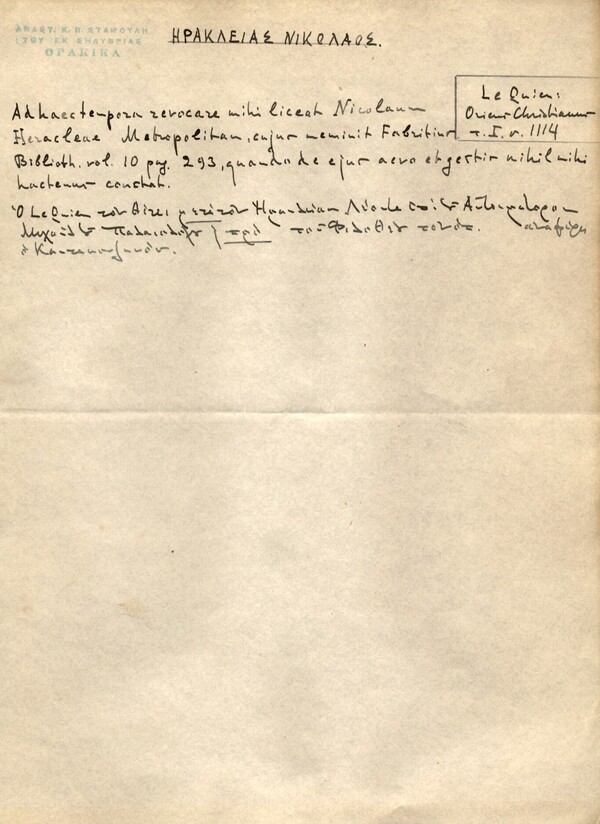 ΑΝΑΣΤ. Κ. Π. ΣΤΑΜΟΥΛΗ
(ΤΟΥ ΕΚ ΣΗΛΥΒΡΙΑΣ
ΘΡΑΚΙΚΑ
ΗΡΑΚΛΕΙΑΣ ΝΙΚΟΛΑΟΣ.
Le Quien:
Oriens Christianus
τ. I. σ. 1114
Ad haec tempora revocare mihi liceat Nicolaum
Heracleae Metropolitan, cujus meminit Fabritius
Biblioth. vol. 10 pag. 293, quando de ejus aevo et gestis nihil mihi
hactenus constat.
Ὁ Le Quien τὸν θέτει μετὰ τὸν Αὐτοκράτορος
Μιχαὴλ Παλαιολόγου πρὸ τοῦ Φιλοθέου ἀναφέρει
ὁ